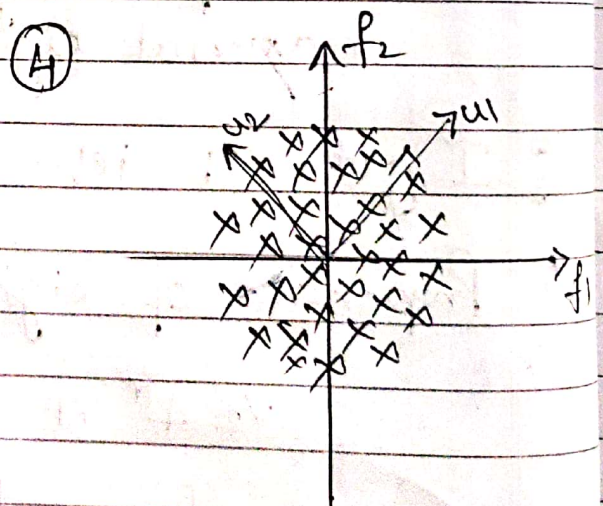 4
f2
u2
u1
f1